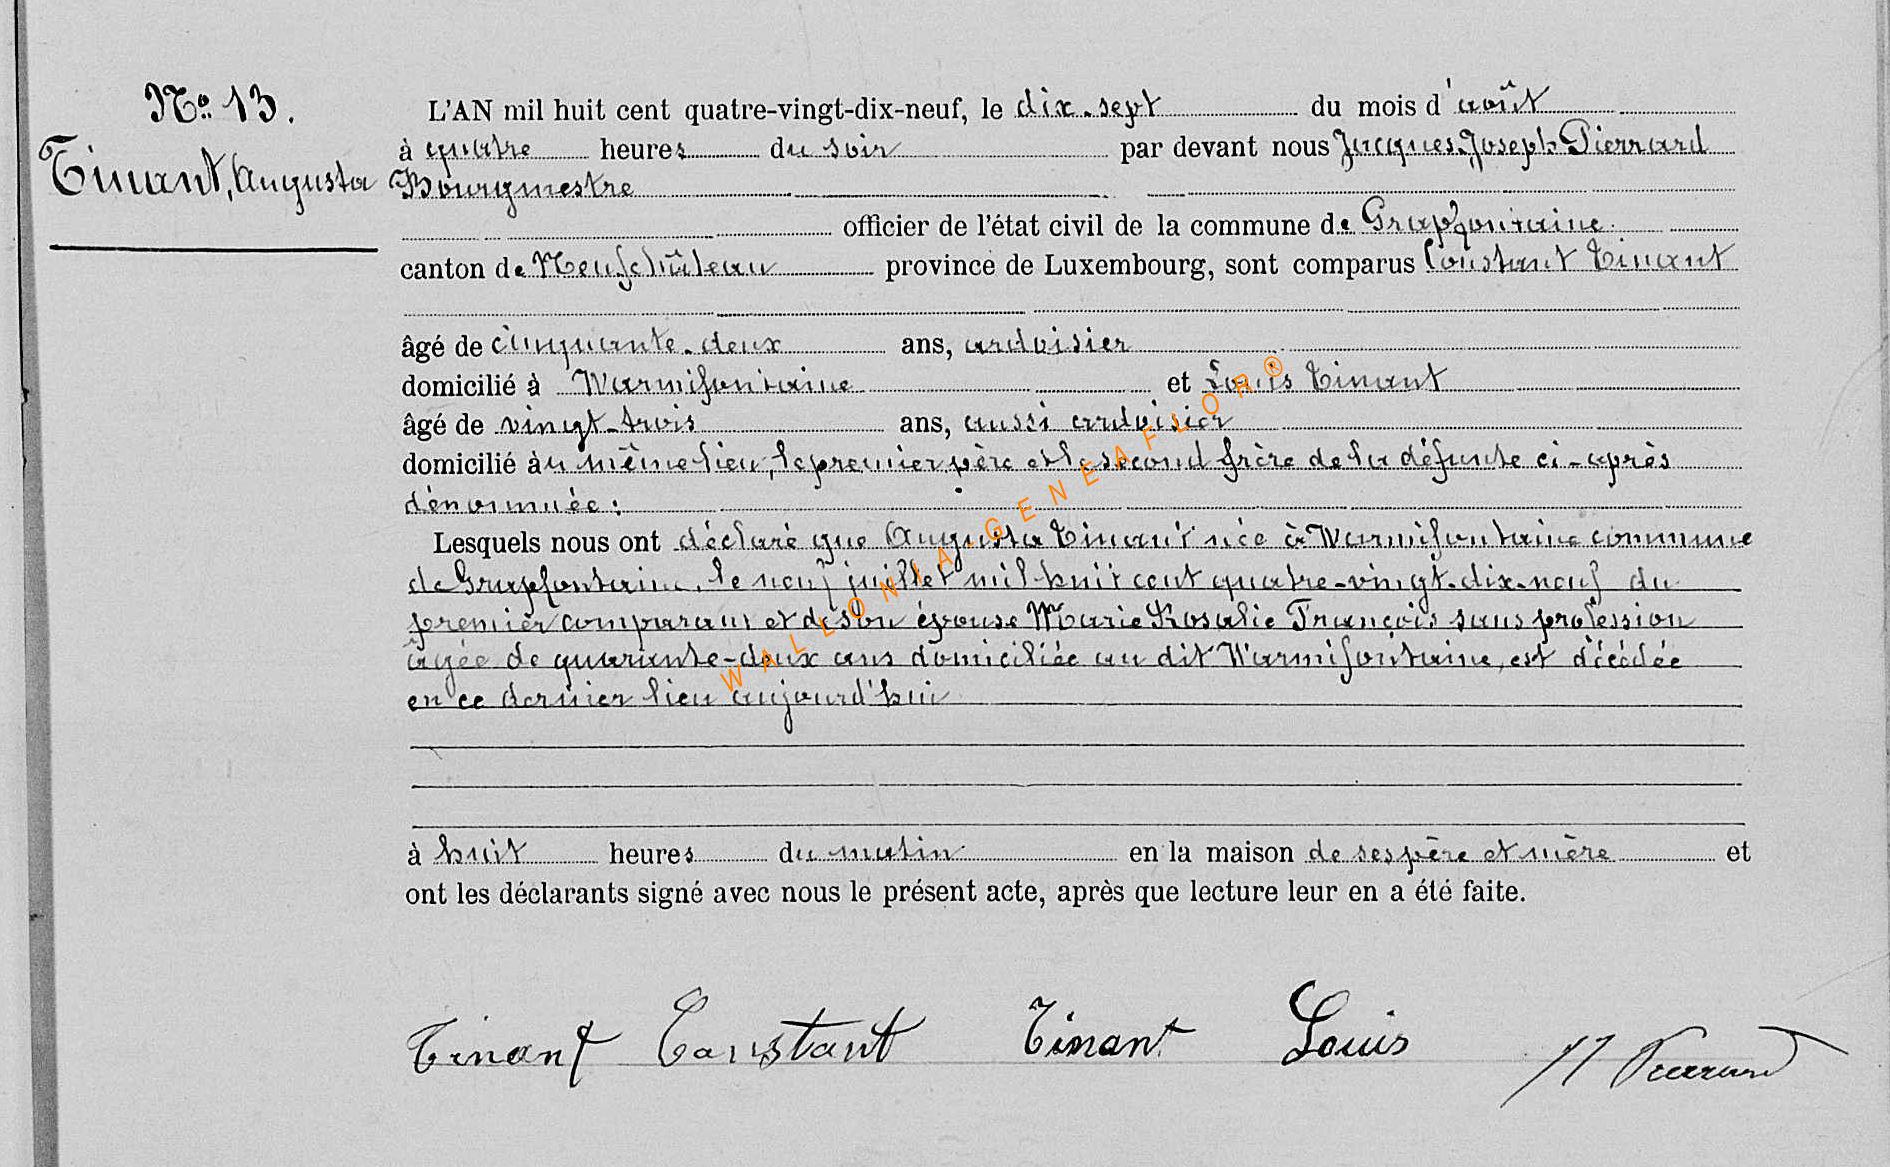 No. 13.
Tinant, Augusta
L'AN mil huit cent quatre-vingt-dix-neuf, le dix-sept du mois d'août
à quatre heures du soir par devant nous Jacques Joseph Pierrard
Bourgmestre
officier de l'état civil de la commune de Grapfontaine.
canton de Neufchâteau province de Luxembourg, sont comparus Constant Tinant
âgé de cinquante-deux ans, ardoisier
domicilié à Warmifontaine et Louis Tinant
âgé de vingt-trois ans, aussi ardoisier
domicilié au même lieu, le premier père et le second frère de la défunte ci-après
dénommée:
Lesquels nous ont déclaré que Augusta Tinant née à Warmifontaine commune
de Grapfontaine, le neuf juillet mil huit cent quatre-vingt-dix-neuf du
premier comparant et de son épouse Marie Rosalie François sans profession
âgée de quarante-deux ans domiciliée au dit Warmifontaine, est décédée
en ce dernier lieu aujourd'hui
à huit heures du matin en la maison de ses père et mère et
ont les déclarants signé avec nous le présent acte, après que lecture leur en a été faite.
Tinant Constant Tinant Louis JJ Pierrard
WALLONIA-GENEAFLOR®